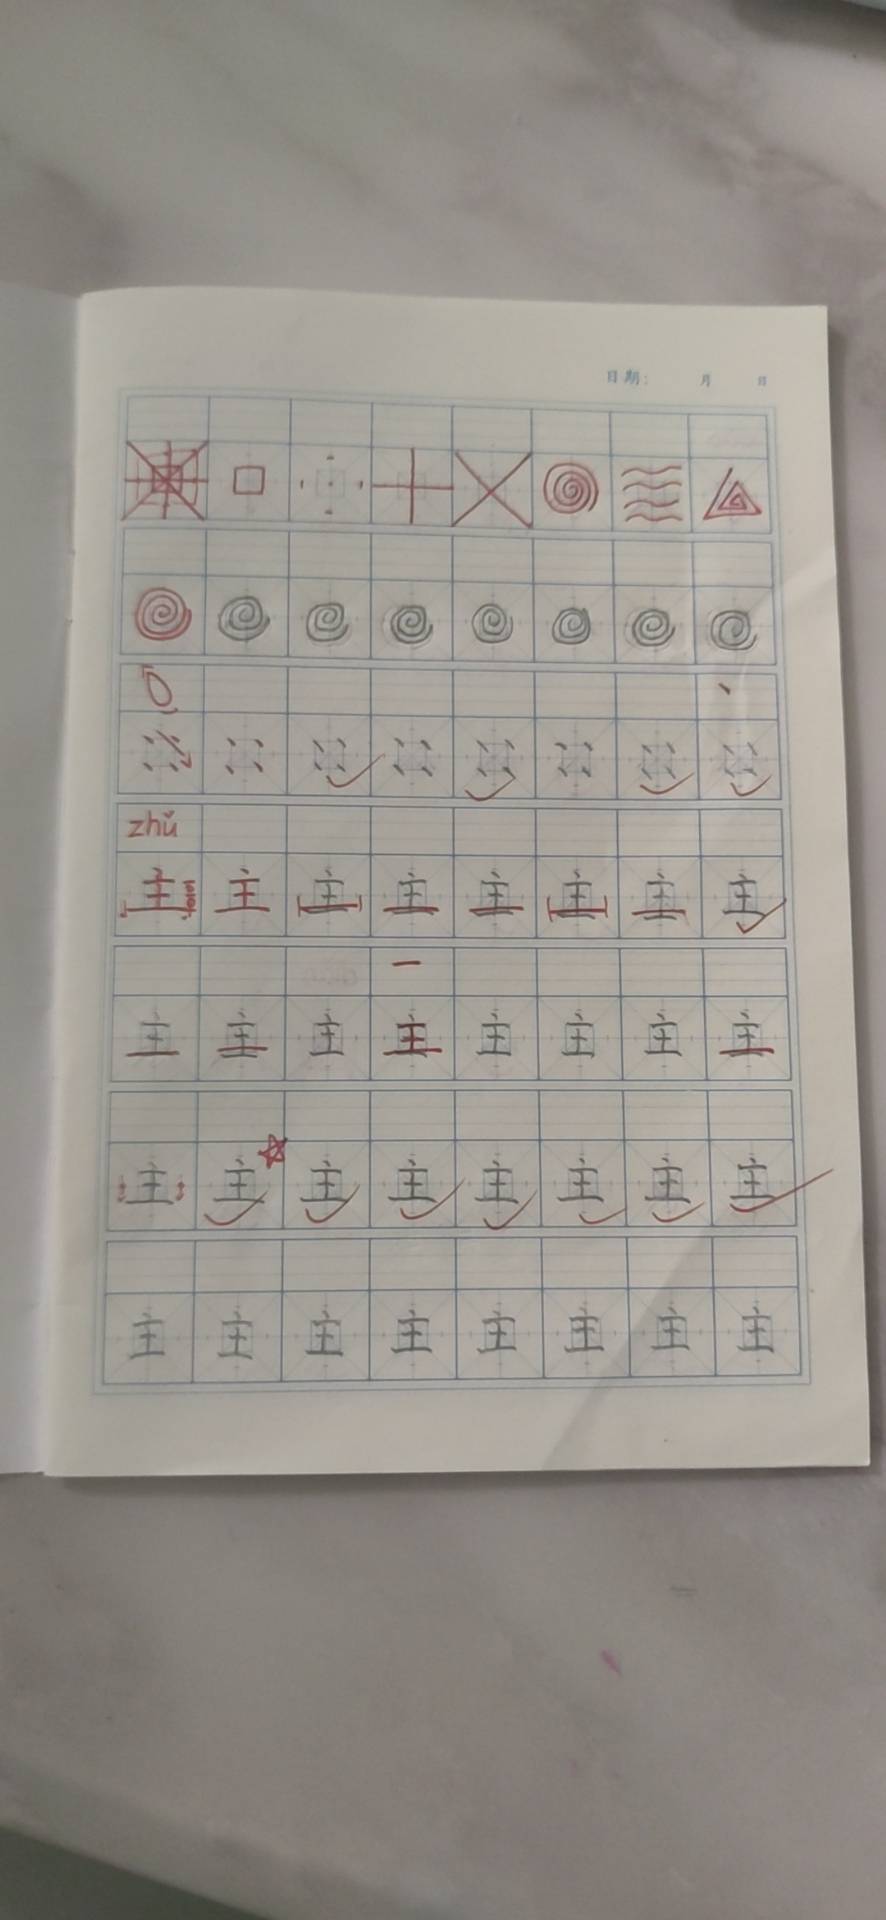 日期： 月 日
zhǔ
主 主 主 主 主 主 主 主
主 主 主 主 主 主 主 主
主 主 主 主 主 主 主 主
主 主 主 主 主 主 主 主